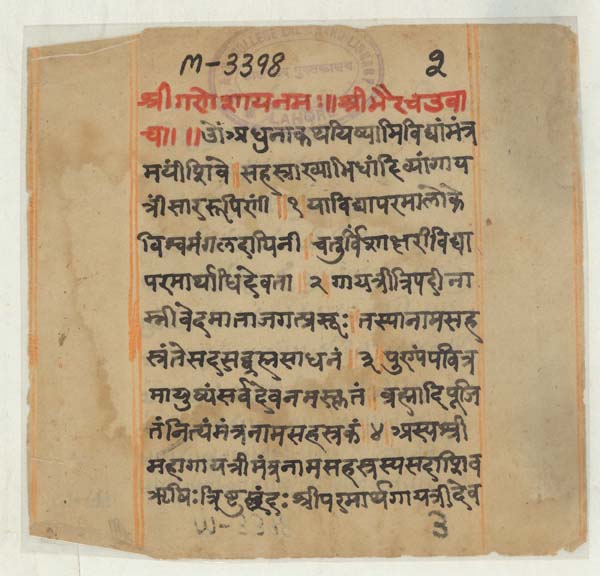 M-3398 2
श्रीगणेशायनमः॥श्रीभैरवउवा
च॥॥ओंअधुनाकथयिष्यामिविद्यांमंत्र
मयींशिवे॥सहस्राख्याभिधांदिव्यांगाय
त्रींसाररूपिणीं॥१याविद्यापरमालोके
विश्वमंगलदायिनी॥चतुर्विंशाक्षरीविद्या
परमार्थाधिदेवता॥२गायत्रीत्रिपदीना
म्नीवेदमाताजगत्प्रसूः॥तस्यानामसह
स्रंते
मायुष्यंसर्वदेवनमस्कृतं॥ब्रह्मादिपूजि
तंनित्यंमंत्रनामसहस्रकं॥४अस्यश्री
महागायत्रीमंत्रनामसहस्रस्यसदाशिव
ऋषिःत्रिष्टुप्छंदःश्रीपरमार्थगायत्रीदेव
3